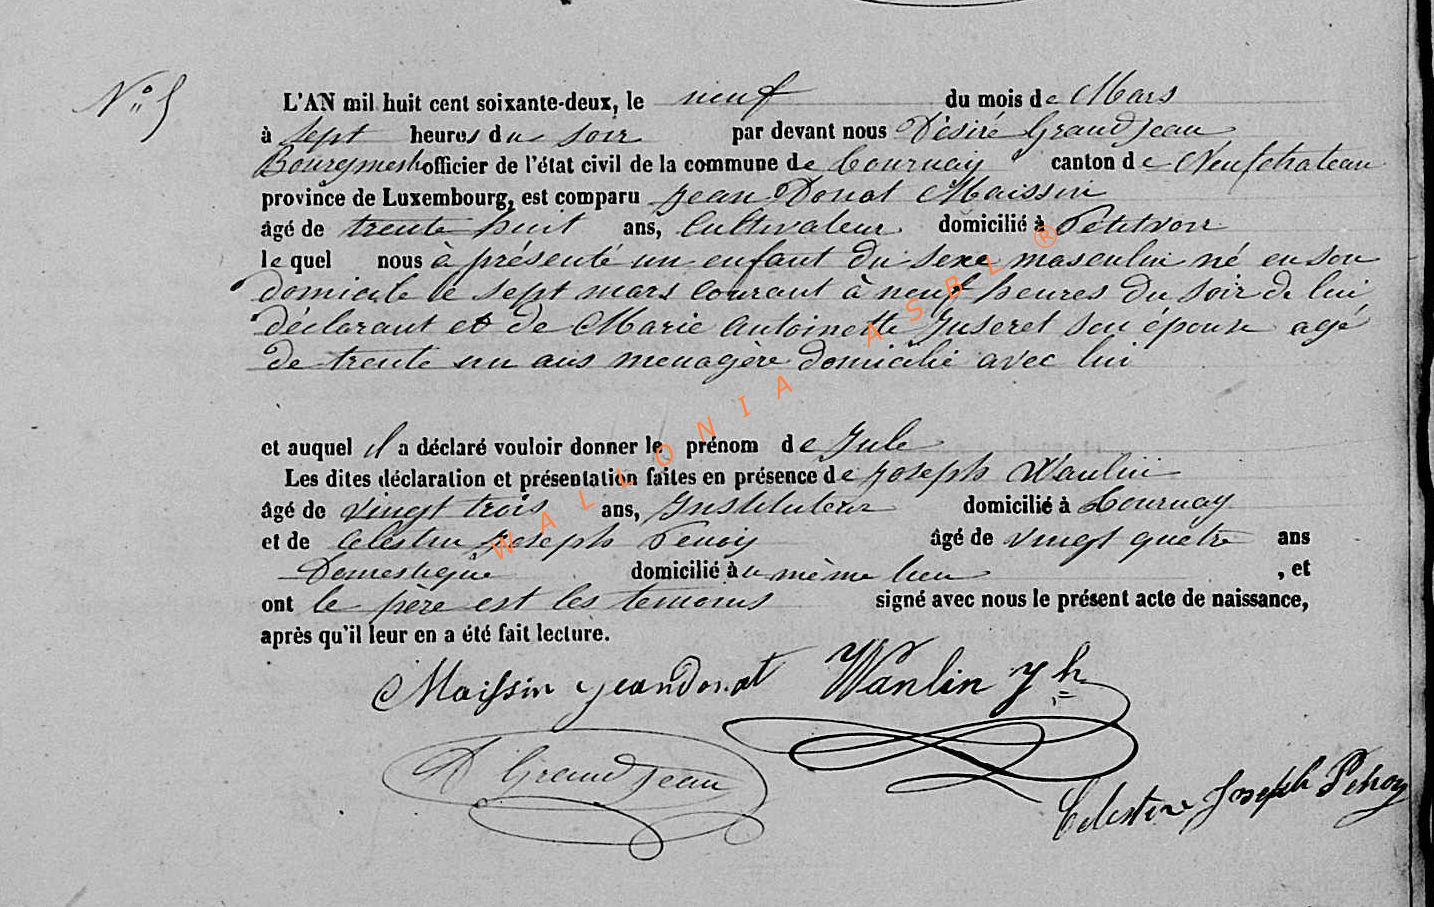 N° 5
L'AN mil huit cent soixante-deux, le neuf du mois de Mars
à sept heures du soir par devant nous Désiré Grandjean
Bourgmestre officier de l'état civil de la commune de Tournay canton de Neufchateau
province de Luxembourg, est comparu Jean Donat Maissin
âgé de trente huit ans, Cultivateur domicilié à Petitvoir
le quel nous à présenté un enfant du sexe masculin né en son
domicile le sept mars courant à neuf heures du soir de lui
déclarant et de Marie Antoinette Juseret son épouse agé
de trente un ans menagère domicilié avec lui
et auquel il a déclaré vouloir donner le prénom de Jule
Les dites déclaration et présentation faites en présence de Joseph Wanlin
âgé de vingt trois ans, Instituteur domicilié à Tournay
et de Celestin Joseph âgé de vingt quatre ans
Domestique domicilié à u même lieu , et
ont le père est les temoins signé avec nous le présent acte de naissance,
après qu'il leur en a été fait lecture.
Maissin jeandonat Wanlin Jh
D Grandjean
Celestin Joseph
WALLONIA ASBL ®